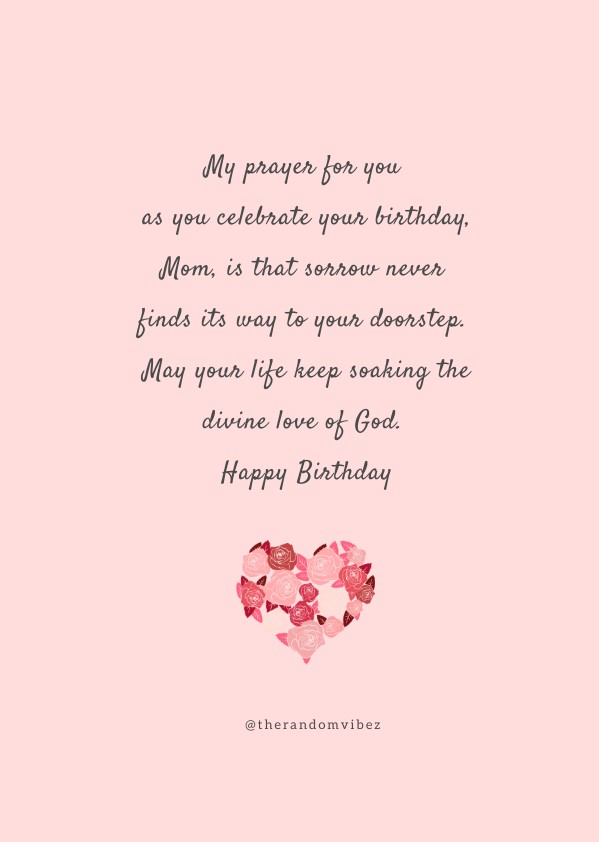 My prayer for you
as you celebrate your birthday,
Mom, is that sorrow never
finds its way to your doorstep.
May your life keep soaking the
divine love of God.
Happy Birthday
@therandomvibez